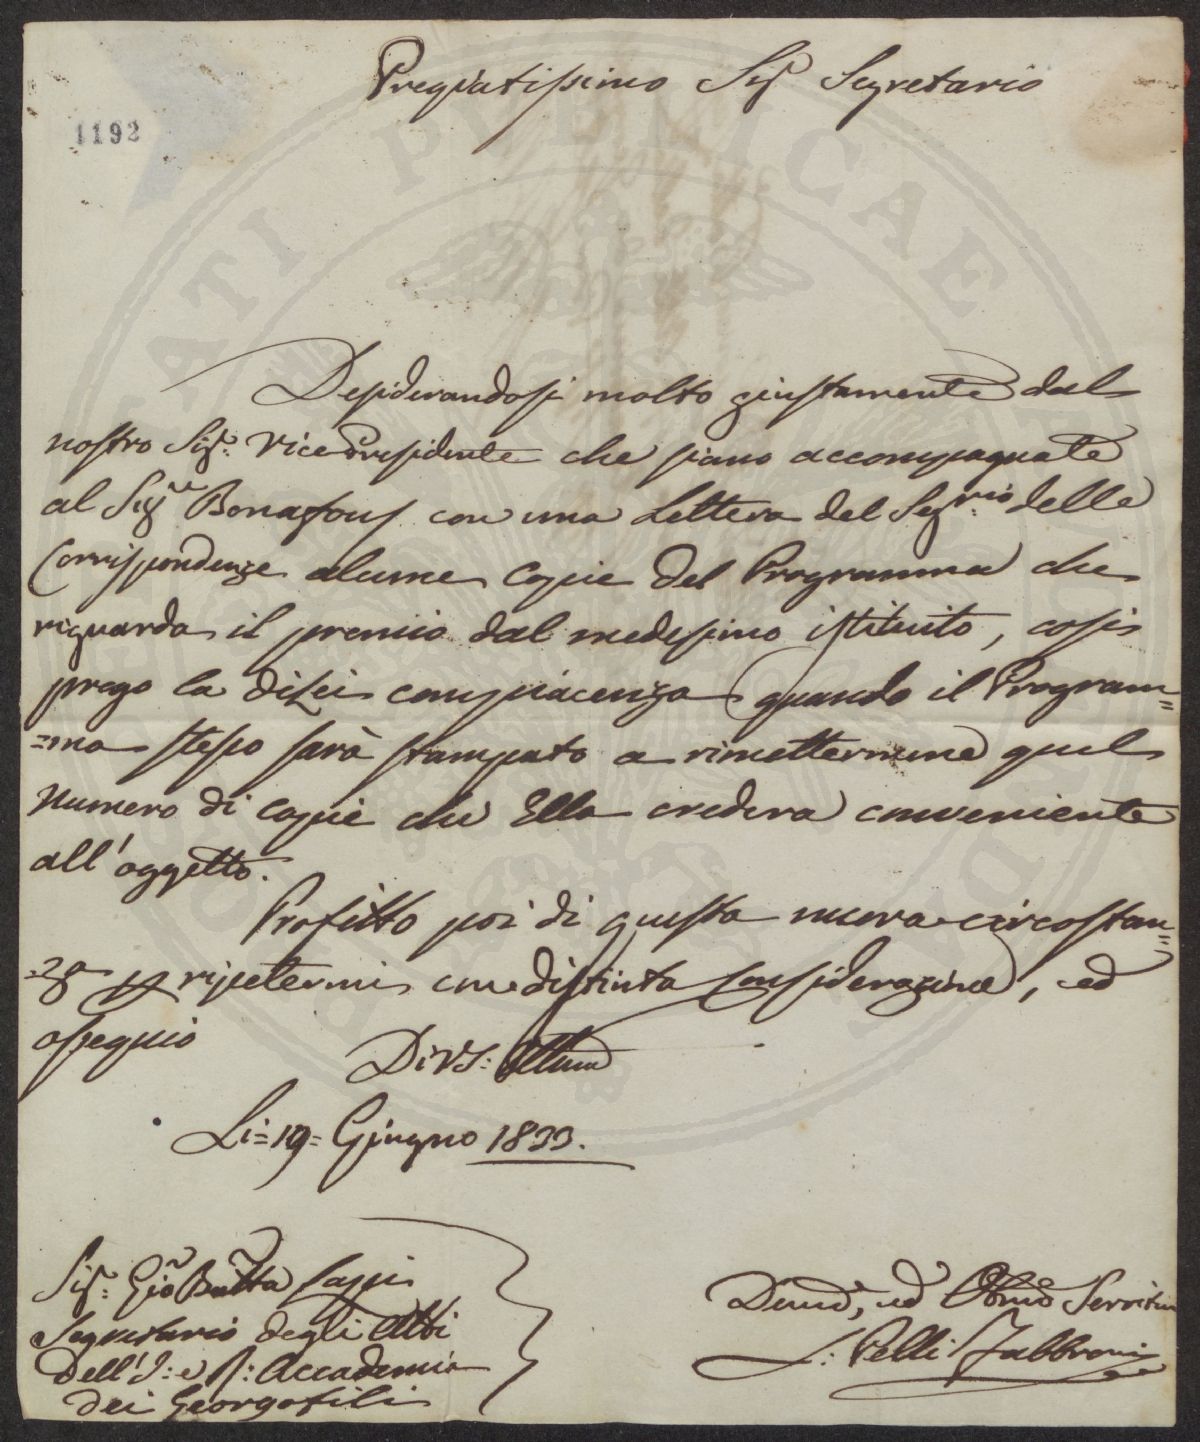 Pregiatissimo Sigr Segretario
1192
Desiderandosi molto giustamente dal
nostro Sigr. Vice Presidente che siano accompagnate
al Sigre Bonafous con una Lettera del Segrio delle
Corrispondenze alcune Copie del Programma che
riguarda il premio dal medesimo istituito, cosi
prego la di Lei compiacenza quando il Program=
=ma stesso sarà stampato a rimettermene quel
numero di copie che Ella credera conveniente
all'oggetto.
Profitto poi di questa nuova circostan=
=za p ripetermi con distinta Considerazione, ed
ossequio
Di VS. Illma
Li=19=Giugno 1833.
Sigr. Gio Batta Lapi
Segretario degli Atti
Dell'I: e R: Accademia
dei Georgofili
Devmo, ed Obbmo Servitor
L: Pelli Fabbroni